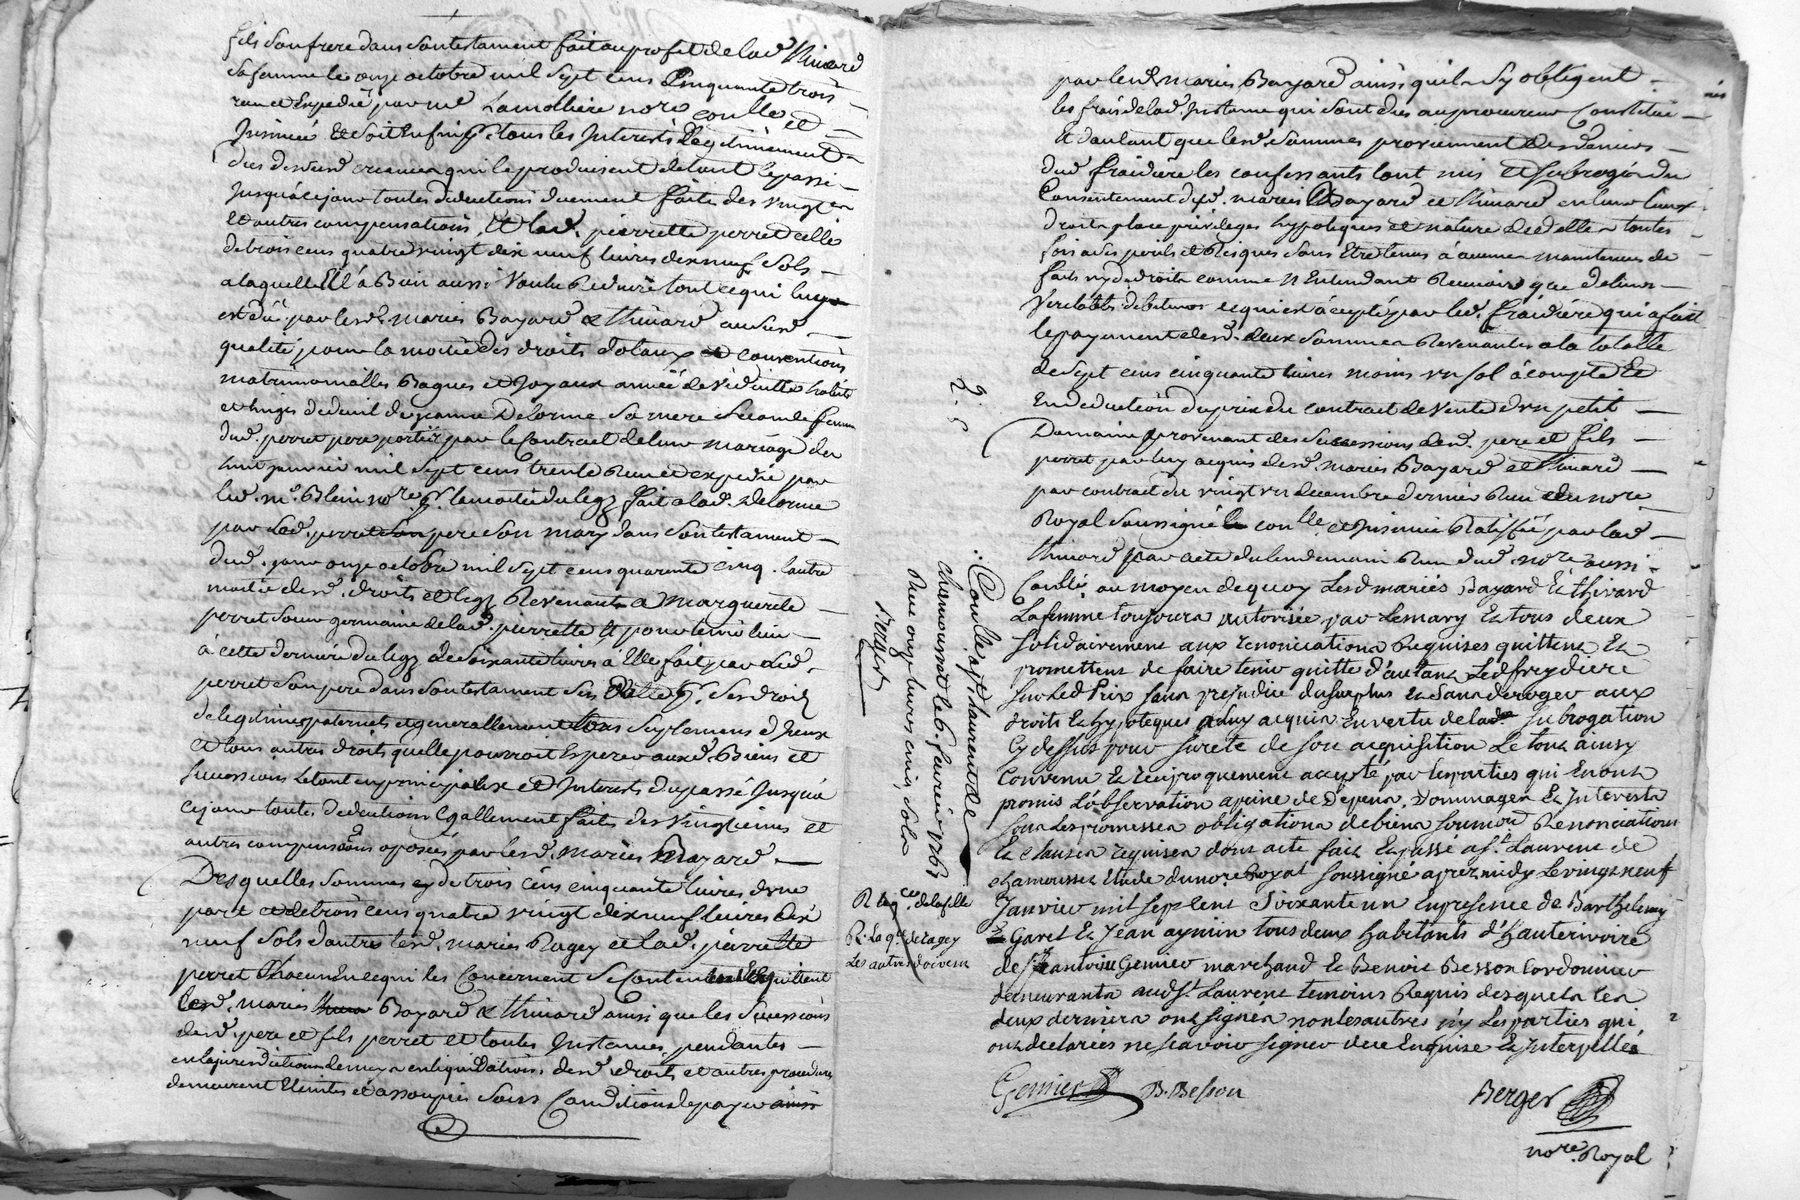 fils son frere dans son testament fait au profit de lad. Thivard
sa femme le onze octobre mil sept cens cinquante trois
receu et expedié par me Lamolliere nore. conlle et
Insinué Et soit Enfin de tous les Interests Legitimement
dus desusd. creances qui le produisent de tout le passé
Jusqua ce jour toutes deductions duement faite des vingt.es
Et autres compensations, Et lad. pierrette perret celle
de trois cens quatre vingt dix neuf livres dix neuf sols
a laquelle Il a Bien aussi voulu Reduire tout ce qui luy
est dû par lesd. mariés Bayard & Thivard aususd.
qualité pour la moitié des droits dotaux et conventions
matrimonialles Bagues et Joyaux année de viduitté habits
et linges de deuil de jeanne Delorme sa mere seconde femme
dud. perret pere portés par le Contract de leur mariage du
huit janvier mil sept cens trente Receu et expedié par
led. me. Blein nore. & la moitié du legz fait a lad. Delorme
par led. perret pere son mary dans son testament
dud. jour onze octobre mil sept cens quarente cinq. lautre
moitié desd. droits et legz Revenants a Marguerite
perret soeur germaine de lad. pierrette Et pour tenir lieu
à cette derniere du legz de soixante livres a Elle fait par led.
perret son pere dans son testament ses droits
de legitimes paternels et generallement tous suplemens d'Iceux
et tous autres droits quelle pourroit Esperer auxd. Biens et
successions le tout en principaux et Interests du passé jusqua
ce jour toutes deductions Egallement faite des vingtiemes et
autres compensaons oposées par lesd. mariés Bayard
Desquelles sommes cy de trois cens cinquante livres d'une
part et de trois cens quatre vingt dix neuf livres dix
neuf sols d'autre lesd. mariés Ragey et lad. pierrette
perret Chacun En ce qui les Concernent se contentent Et quittent
lesd. mariés Bayard & Thivard ainsi que les successions
desd. pere et fils perret et toutes Instances pendantes
en la jurisdiction en liquidation desd. droits et autres procedures
demeurent Eteintes et assoupies sous Condition de payer
par lesd. mariés Bayard ainsi quils sy obligent
les frais de lad. Instance qui sont dus au procureur Constitué
Et d'autant que lesd. sommes proviennent des deniers
dud. fraidiere les confessants l'ont mis et subrogé du
Consentement desd. mariés Bayard et Thivard en leur lieux
droits place privileges hypoteques et nature de dettes toutes
fois a ses perils et Risques sans Etre tenus à aucune maintenue de
faits ny de droits comme n'Entendant Recevoir que de leurs
veritables debiteurs ce qui est accepté par led. fraidiere qui a fait
le payement desd. deux sommes Revenantes a la totalle
de sept cens cinquante livres moins un sol à compte Et
En deduction du prix du contract de vente d'un petit
Domaine provenant des successions desd. pere et fils
perret par luy acquis desd. mariés Bayard et Thivard
par contract du vingt un decembre dernier Receu du nore.
Royal soussigné conlle. et Insinué Ratiffié par lad.
Thivard par acte du lendemain Receu dud. nore. aussi
Conllé. au moyen de quoy Lesd mariés Bayard Et thivard
La femme toujours autorisée par Le mary Et tous deux
solidairement aux renonciations Requises quittent Et
promettent de faire tenir quitte d'autant Led freydiere
sur led Prix sans prejudice du surplus Et sans deroger aux
droits Et hypoteques a luy acquis En vertu de lade subrogation
Cy dessus pour surete de son acquisition Le tout ainsy
Convenu Et reciproquement accepté par les parties qui En ont
promis L'observation a peine de Depens, Dommages Et Interests
sous Les promesses obligations de biens soumons Renonciations
Et clauses requises dont acte fait Et passé a St. Laurent de
chamousset Etude du nore. Royal soussigné aprez midy Le vingt neuf
Janvier mil sept cent soixante un En presence de Barthelemy
Garel Et Jean aymin tous deux habitants d'hauterivoire
de sr. antoine Gemier marchand Et Benoit Besson Cordonnier
demeurants aud St. Laurent temoins Requis desquels les
deux derniers ont signés non les autres n'y Les parties qui
ont declarées ne scavoir signer de ce Enquise Et Interpellées
Gemier B. Besson Berger
nore. Royal
2. 5
Conllé a St. Laurent de
Chamousset le 6. fevrier 1761
Receu onze livres cinq sols
R la qce. de la fille
R. la qce. de ragey
Les autres doivent